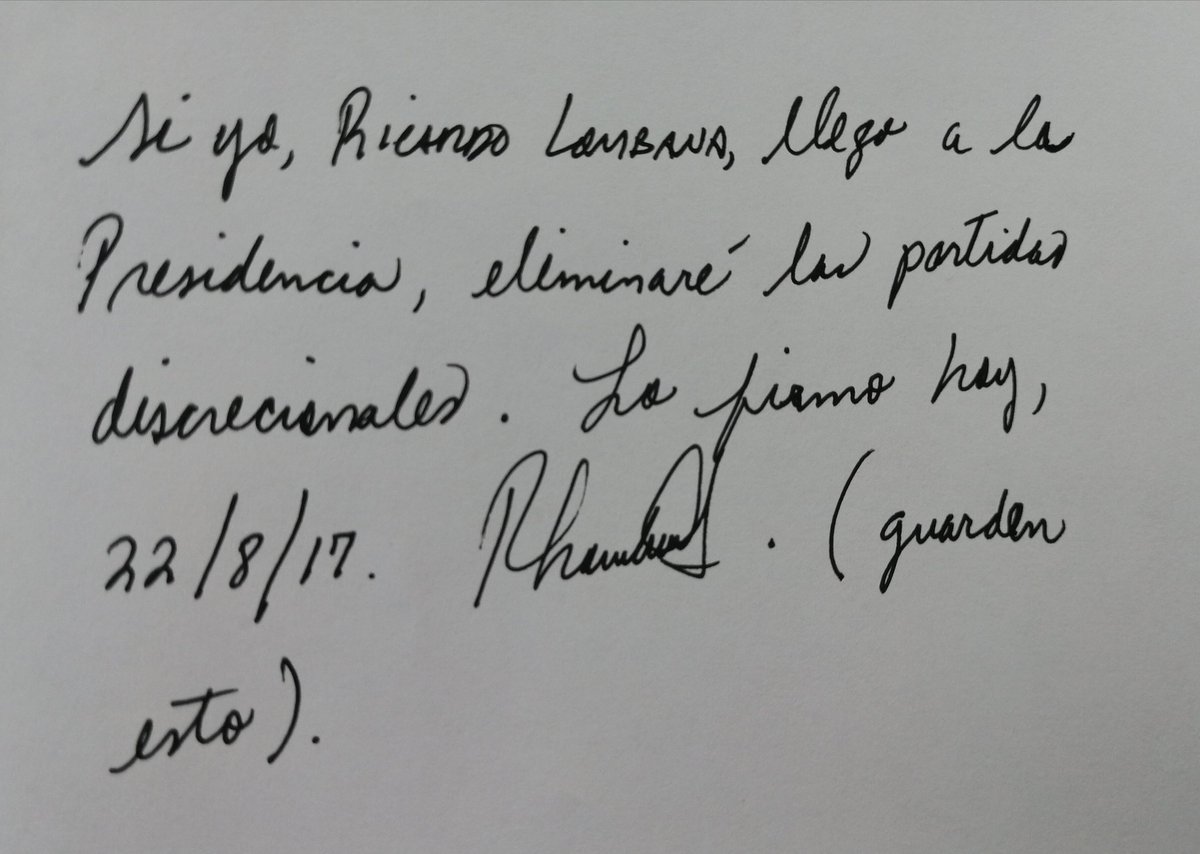 Si yo, RICARDO LOMBANA, llego a la
Presidencia, eliminaré las partidas
discrecionales. Lo firmo hoy,
22/8/17. . (guarden
esto).